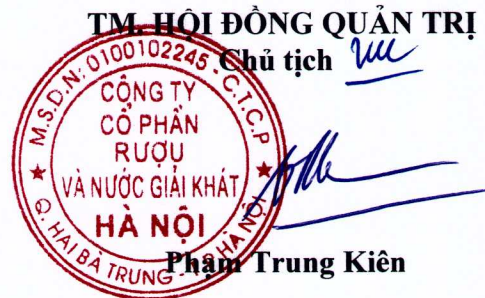 TM. HỘI ĐỒNG QUẢN TRỊ
Chủ tịch
M.S.D.N: 0100102245 - C.T.C.P
CÔNG TY
CỔ PHẦN
RƯỢU
VÀ NƯỚC GIẢI KHÁT
HÀ NỘI
Q. HAI BÀ TRƯNG - TP HÀ NỘI
Phạm Trung Kiên